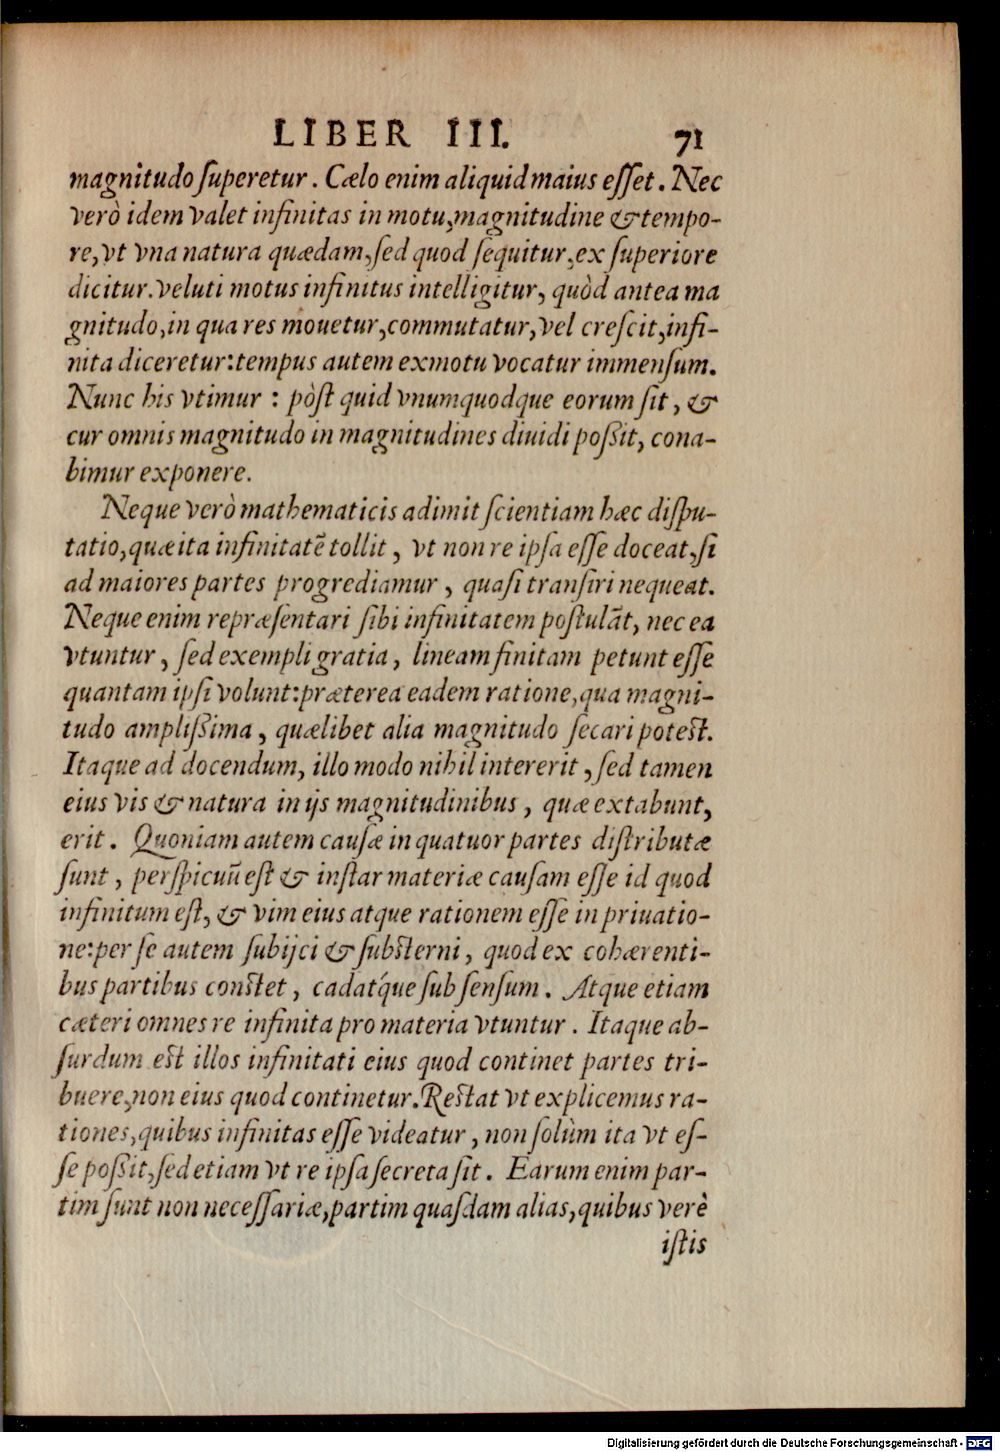 LIBER III. 71
magnitudo ſuperetur. Cælo enim aliquid maius eſſet. Nec
verò idem valet infinitas in motu, magnitudine & tempo-
re, vt vna natura quædam, ſed quod ſequitur, ex ſuperiore
dicitur. veluti motus infinitus intelligitur, quòd antea ma
gnitudo, in qua res mouetur, commutatur, vel creſcit, infi-
nita diceretur: tempus autem ex motu vocatur immenſum.
Nunc his vtimur : pòſt quid vnumquodque eorum ſit, &
cur omnis magnitudo in magnitudines diuidi poßit, cona-
bimur exponere.
Neque verò mathematicis adimit ſcientiam hæc diſpu-
tatio, quæ ita infinitatē tollit, vt non re ipſa eſſe doceat, ſi
ad maiores partes progrediamur, quaſi tranſiri nequeat.
Neque enim repræſentari ſibi infinitatem poſtulāt, nec ea
vtuntur, ſed exempli gratia, lineam finitam petunt eſſe
quantam ipſi volunt: præterea eadem ratione, qua magni-
tudo amplißima, quælibet alia magnitudo ſecari poteſt.
Itaque ad docendum, illo modo nihil intererit, ſed tamen
eius vis & natura in ijs magnitudinibus, quæ extabunt,
erit. Quoniam autem cauſæ in quatuor partes diſtributæ
ſunt, perſpicuū eſt & inſtar materiæ cauſam eſſe id quod
infinitum eſt, & vim eius atque rationem eſſe in priuatio-
ne: per ſe autem ſubijci & ſubſterni, quod ex cohærenti-
bus partibus conſtet, cadat́que ſub ſenſum. Atque etiam
cæteri omnes re infinita pro materia vtuntur. Itaque ab-
ſurdum eſt illos infinitati eius quod continet partes tri-
buere, non eius quod continetur. Reſtat vt explicemus ra-
tiones, quibus infinitas eſſe videatur, non ſolùm ita vt eſ-
ſe poßit, ſed etiam vt re ipſa ſecreta ſit. Earum enim par-
tim ſunt non neceſſariæ, partim quaſdam alias, quibus verè
iſtis
Digitalisierung gefördert durch die Deutsche Forschungsgemeinschaft - DFG